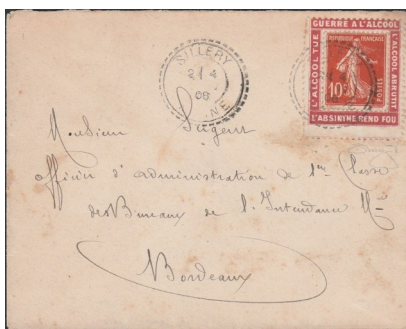 GUERRE A L'ALCOOL
L'ALCOOL TUE
L'ALCOOL ABRUTIT
REPUBLIQUE FRANÇAISE
10c
POSTES
L'ABSINTHE REND FOU
SILLERY
21 4
08
Monsieur Sugent
Officier d'administration de 1re Classe
des Bureaux de l'Intendance Mre
Bordeaux